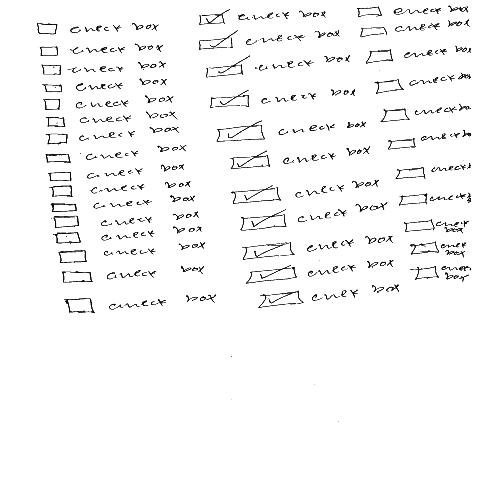 check box
check box
check box
check box
check box
check box
check box
check box
check box
check box
check box
check box
check box
check box
check box
check box
check box
check box
check box
check box
check box
check box
check box
check box
check box
check box
check box
check box
check box
check box
check bo
check bo
check b
check
check
check
box
check
box
check
box